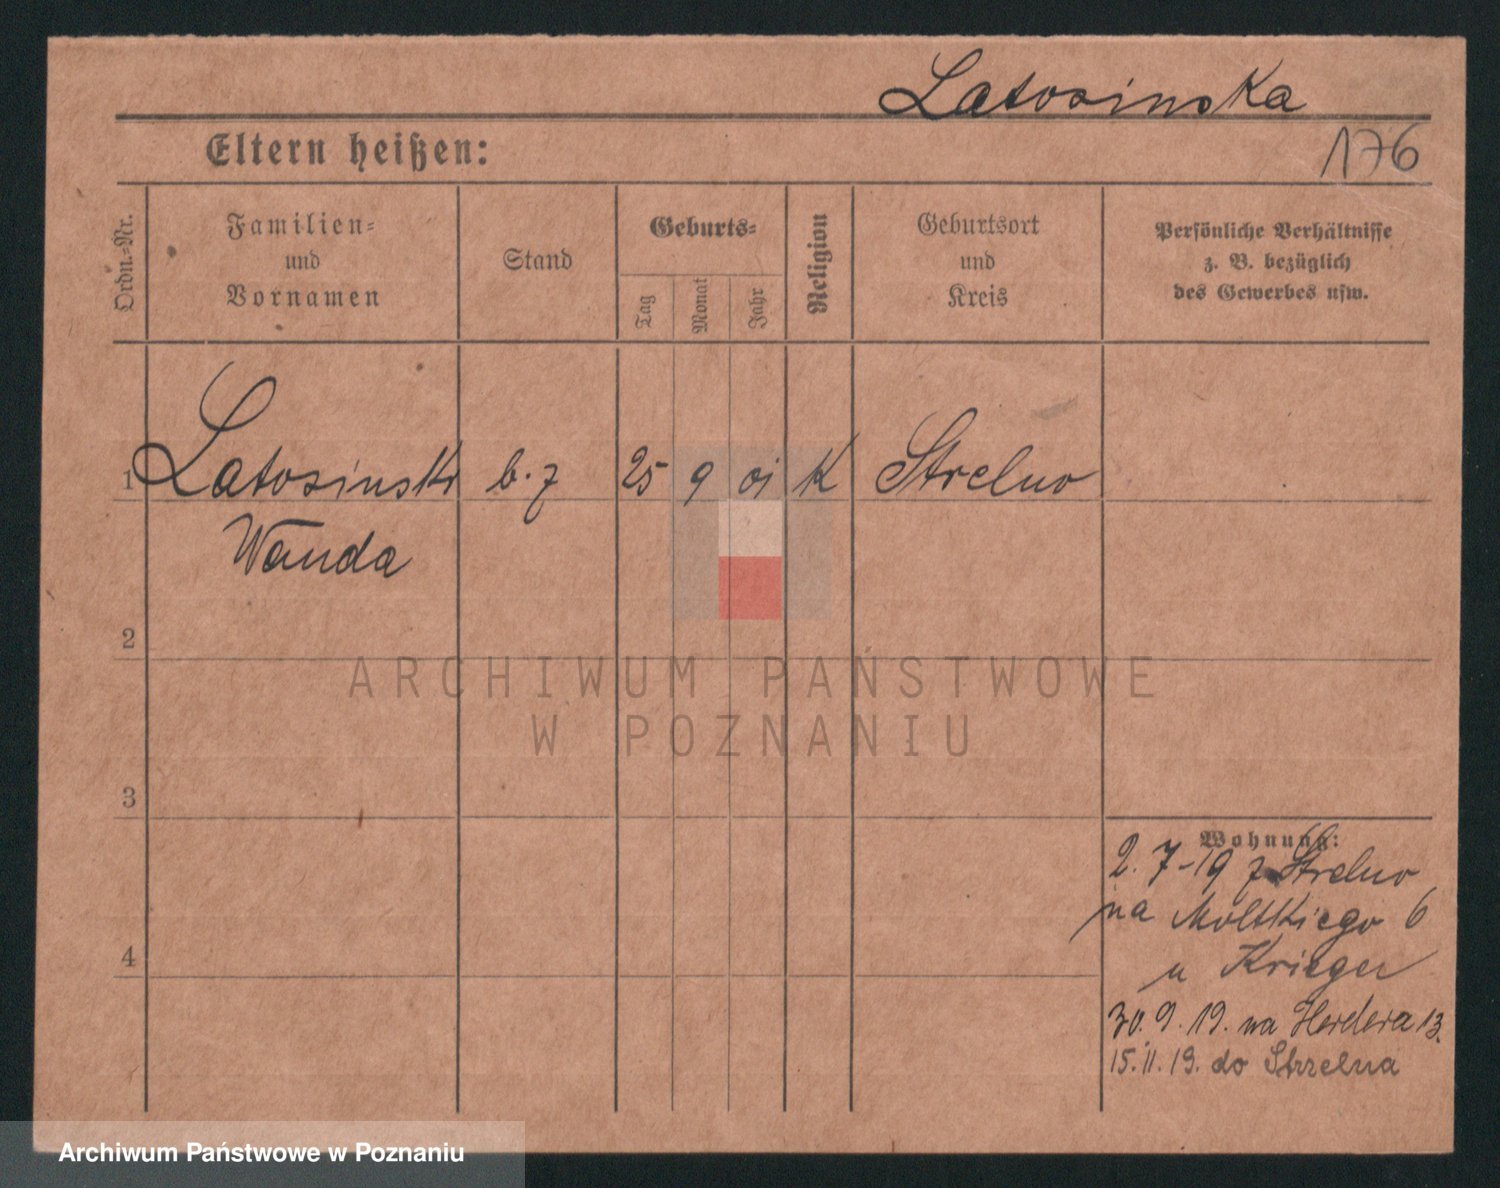 Latosinska
176
Eltern heißen:
Ordn.-Nr.
Familien-
und
Vornamen
Stand
Geburts-
Tag
Monat
Jahr
Religion
Geburtsort
und
Kreis
Persönliche Verhältnisse
z. B. bezüglich
des Gewerbes usw.
1 Latosinska b. z 25 9 01 K Strelno
Wanda
2
ARCHIWUM PAŃSTWOWE
W POZNANIU
3
Wohnung:
2. 7-19 z Strelno
na Moltkiego 6
u Krieger
4
30. 9. 19. na Herdera 13.
15. 11. 19. do Strzelna
Archiwum Państwowe w Poznaniu